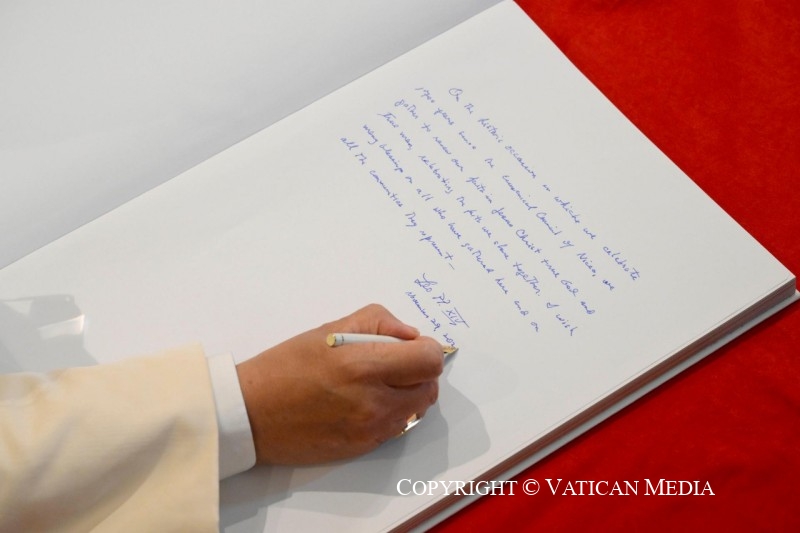 On the historic occasion in which we celebrate
1700 years since the ecumenical Council of Nicea, we
gather to renew our faith in Jesus Christ true God and
true man, celebrating the faith we share together. I wish
many blessings on all who have gathered here and on
all the communities they represent –
Leo PP XIV
November 29, 20
COPYRIGHT © VATICAN MEDIA